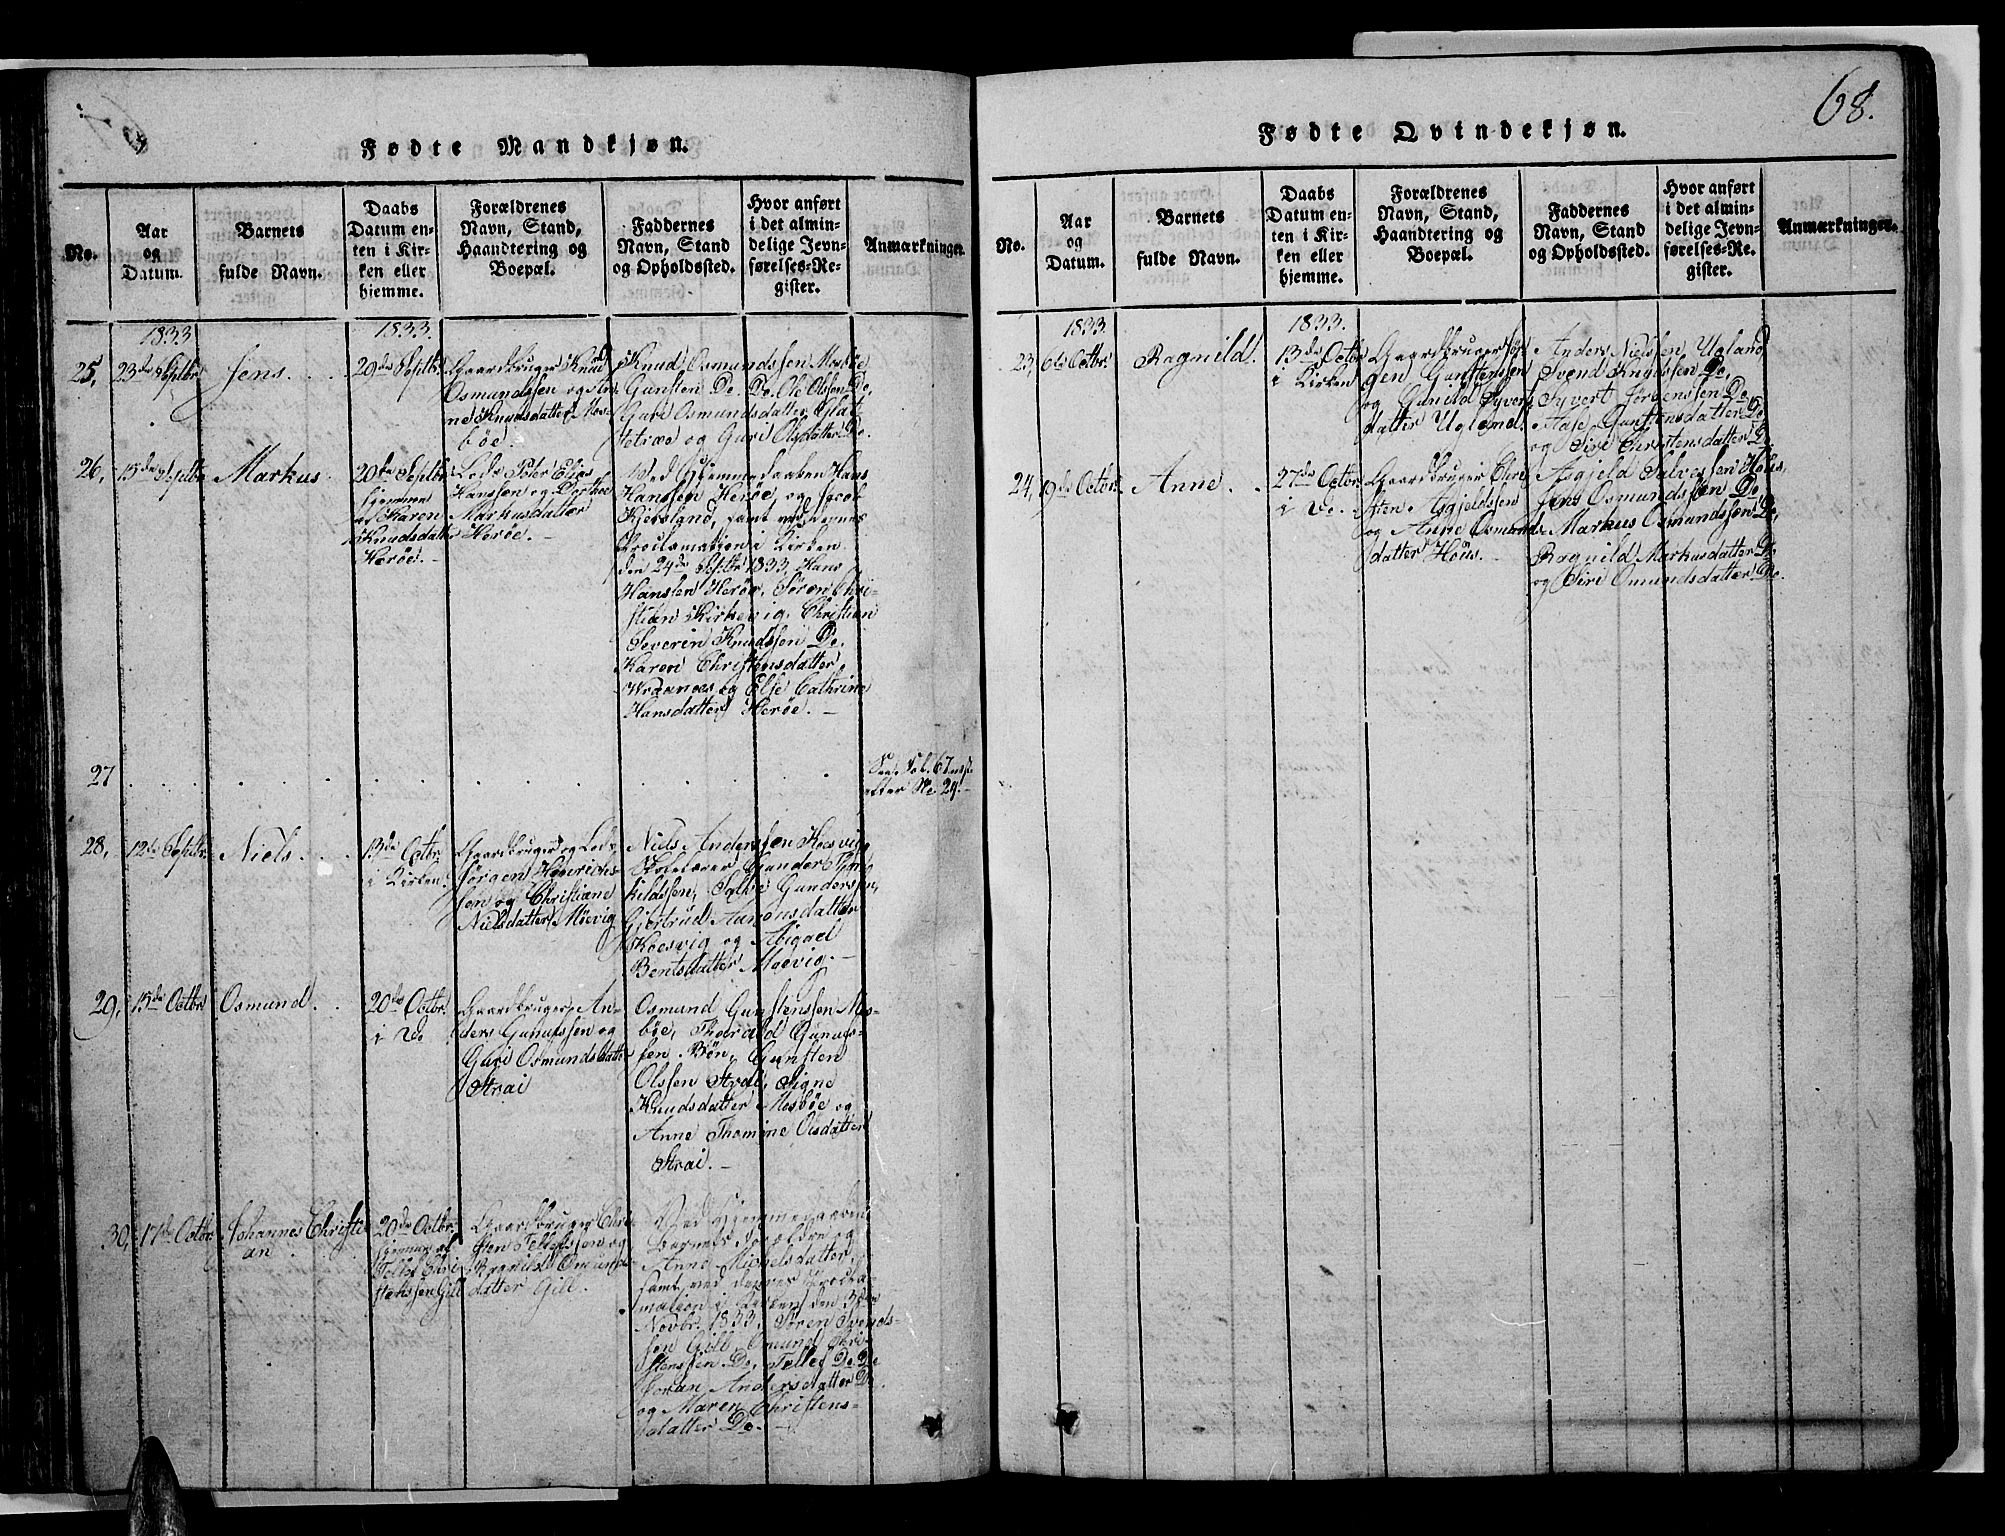 68.
Fødte Mandkjøn.
No.
Aar
og
Datum.
Barnets
fulde Navn.
Daabs
Datum en-
ten i Kir-
ken eller
hjemme.
Forældrenes
Navn, Stand,
Haandtering og
Boepæl.
Faddernes
Navn, Stand
og Opholdssted.
Hvor anført
i det almin-
delige Jevn-
førelses-Re-
gister.
Anmærkninger.
1833
1833.
25,
23de Septbr
Jens.
29de Septbr
Gaardbruger Knud
Osmundssen og An-
ne Knudsdatter Mos-
bøe.
Knud Osmundssen Mosbøe
Gunsten Do. Do. Ole Olsen Do,
Guri Osmundsdatter Slat-
tetræe og Guri Olsdatter Do.
26,
15de Septbr
Markus.
20de Septbr
hjemme
af Karen
Knudsdatter
Herøe.
Lods Peter Elias
Hanssen og Dorthee
Markusdatter
Herøe.
Ved Hjemmedaaben Hans
Hanssen Herøe, og Jacob
Kjersland, samt ved dennes
Proclamation i Kirken
den 24de Septbr 1833. Hans
Hanssen Herøe, Søren Chri-
stian Kirkevig, Christian
Severin Knudssen Do.
Karen Christensdatter
Wraanes og Else Cathrine
Hansdatter Herøe.
27
See Fol. 67 næst
efter No 24.
28,
12de Septbr
Niels.
13de Octbr
i Kirken.
Gaardbruger og Lods
Jørgen Henrichs-
sen og Christiane
Nielsdatter Møevig
Niels Anderssen Koesvig
Skolelærer Gunder Ther-
kildssen, Salve Gunderssen,
Gjertrud Aanonsdatter
Koesvig og Abigael
Bentsdatter Moevig.
29,
15de Octbr
Osmund.
20de Octbr.
i Do
Gaardbruger An-
ders Gunufssen og
Guri Osmundsdatter
Strai
Osmund Gunstenssen Mos-
bøe, Tharald Gunufs-
sen Bøn, Gunsten
Olssen Strai, Signe
Knudsdatter Mosbøe og
Anne Thomine Olsdatter
Strai.
30,
17de Octbr
Johannes Christi-
an
20de Octbr.
hjemme af
Tellef Chri-
stenssen Gill
Gaardbruger Chri-
sten Tellefssen og
Ragnild Omunds-
datter Gill.
Ved Hjemmedaaben
Barnets Forældre og
Anne Michelsdatter,
samt ved dennes Procla-
mation i Kirken den 3de
Novbr. 1833. Søren Svends-
sen Gill, Omund Chri-
stenssen Do, Tellef Do Do
Andersdatter Do.
og Maren Christens-
datter Do.
Fødte Qvindekjøn.
No.
Aar
og
Datum.
Barnets
fulde Navn.
Daabs
Datum en-
ten i Kir-
ken eller
hjemme.
Forældrenes
Navn, Stand,
Haandtering og
Boepæl.
Faddernes
Navn, Stand
og Opholdssted.
Hvor anført
i det almin-
delige Jevn-
førelses-Re-
gister.
Anmærkninger.
1833
1833.
23,
6te Octbr.
Ragnild.
13de Octbr
i Kirken
Gaardbruger Jør-
gen Gunstenssen
og Gunild Syverts-
datter Ugland.
Anders Nielssen Ugland
Svend Knudssen Do,
Syvert Jørgenssen Do
Aase Gunstensdatter Do
og Siri Christensdatter Do.
24,
19de Octbr.
Anne.
27de Octbr
i Do.
Gaardbruger Chri-
sten Asgjeldssen
og Anne Osmunds-
datter Hous.
Asgjeld Salvessen Hous,
Jens Osmundssen Do
Markus Osmundssen Do,
Ragnild Markusdatter Do
og Siri Omundsdatter Do.